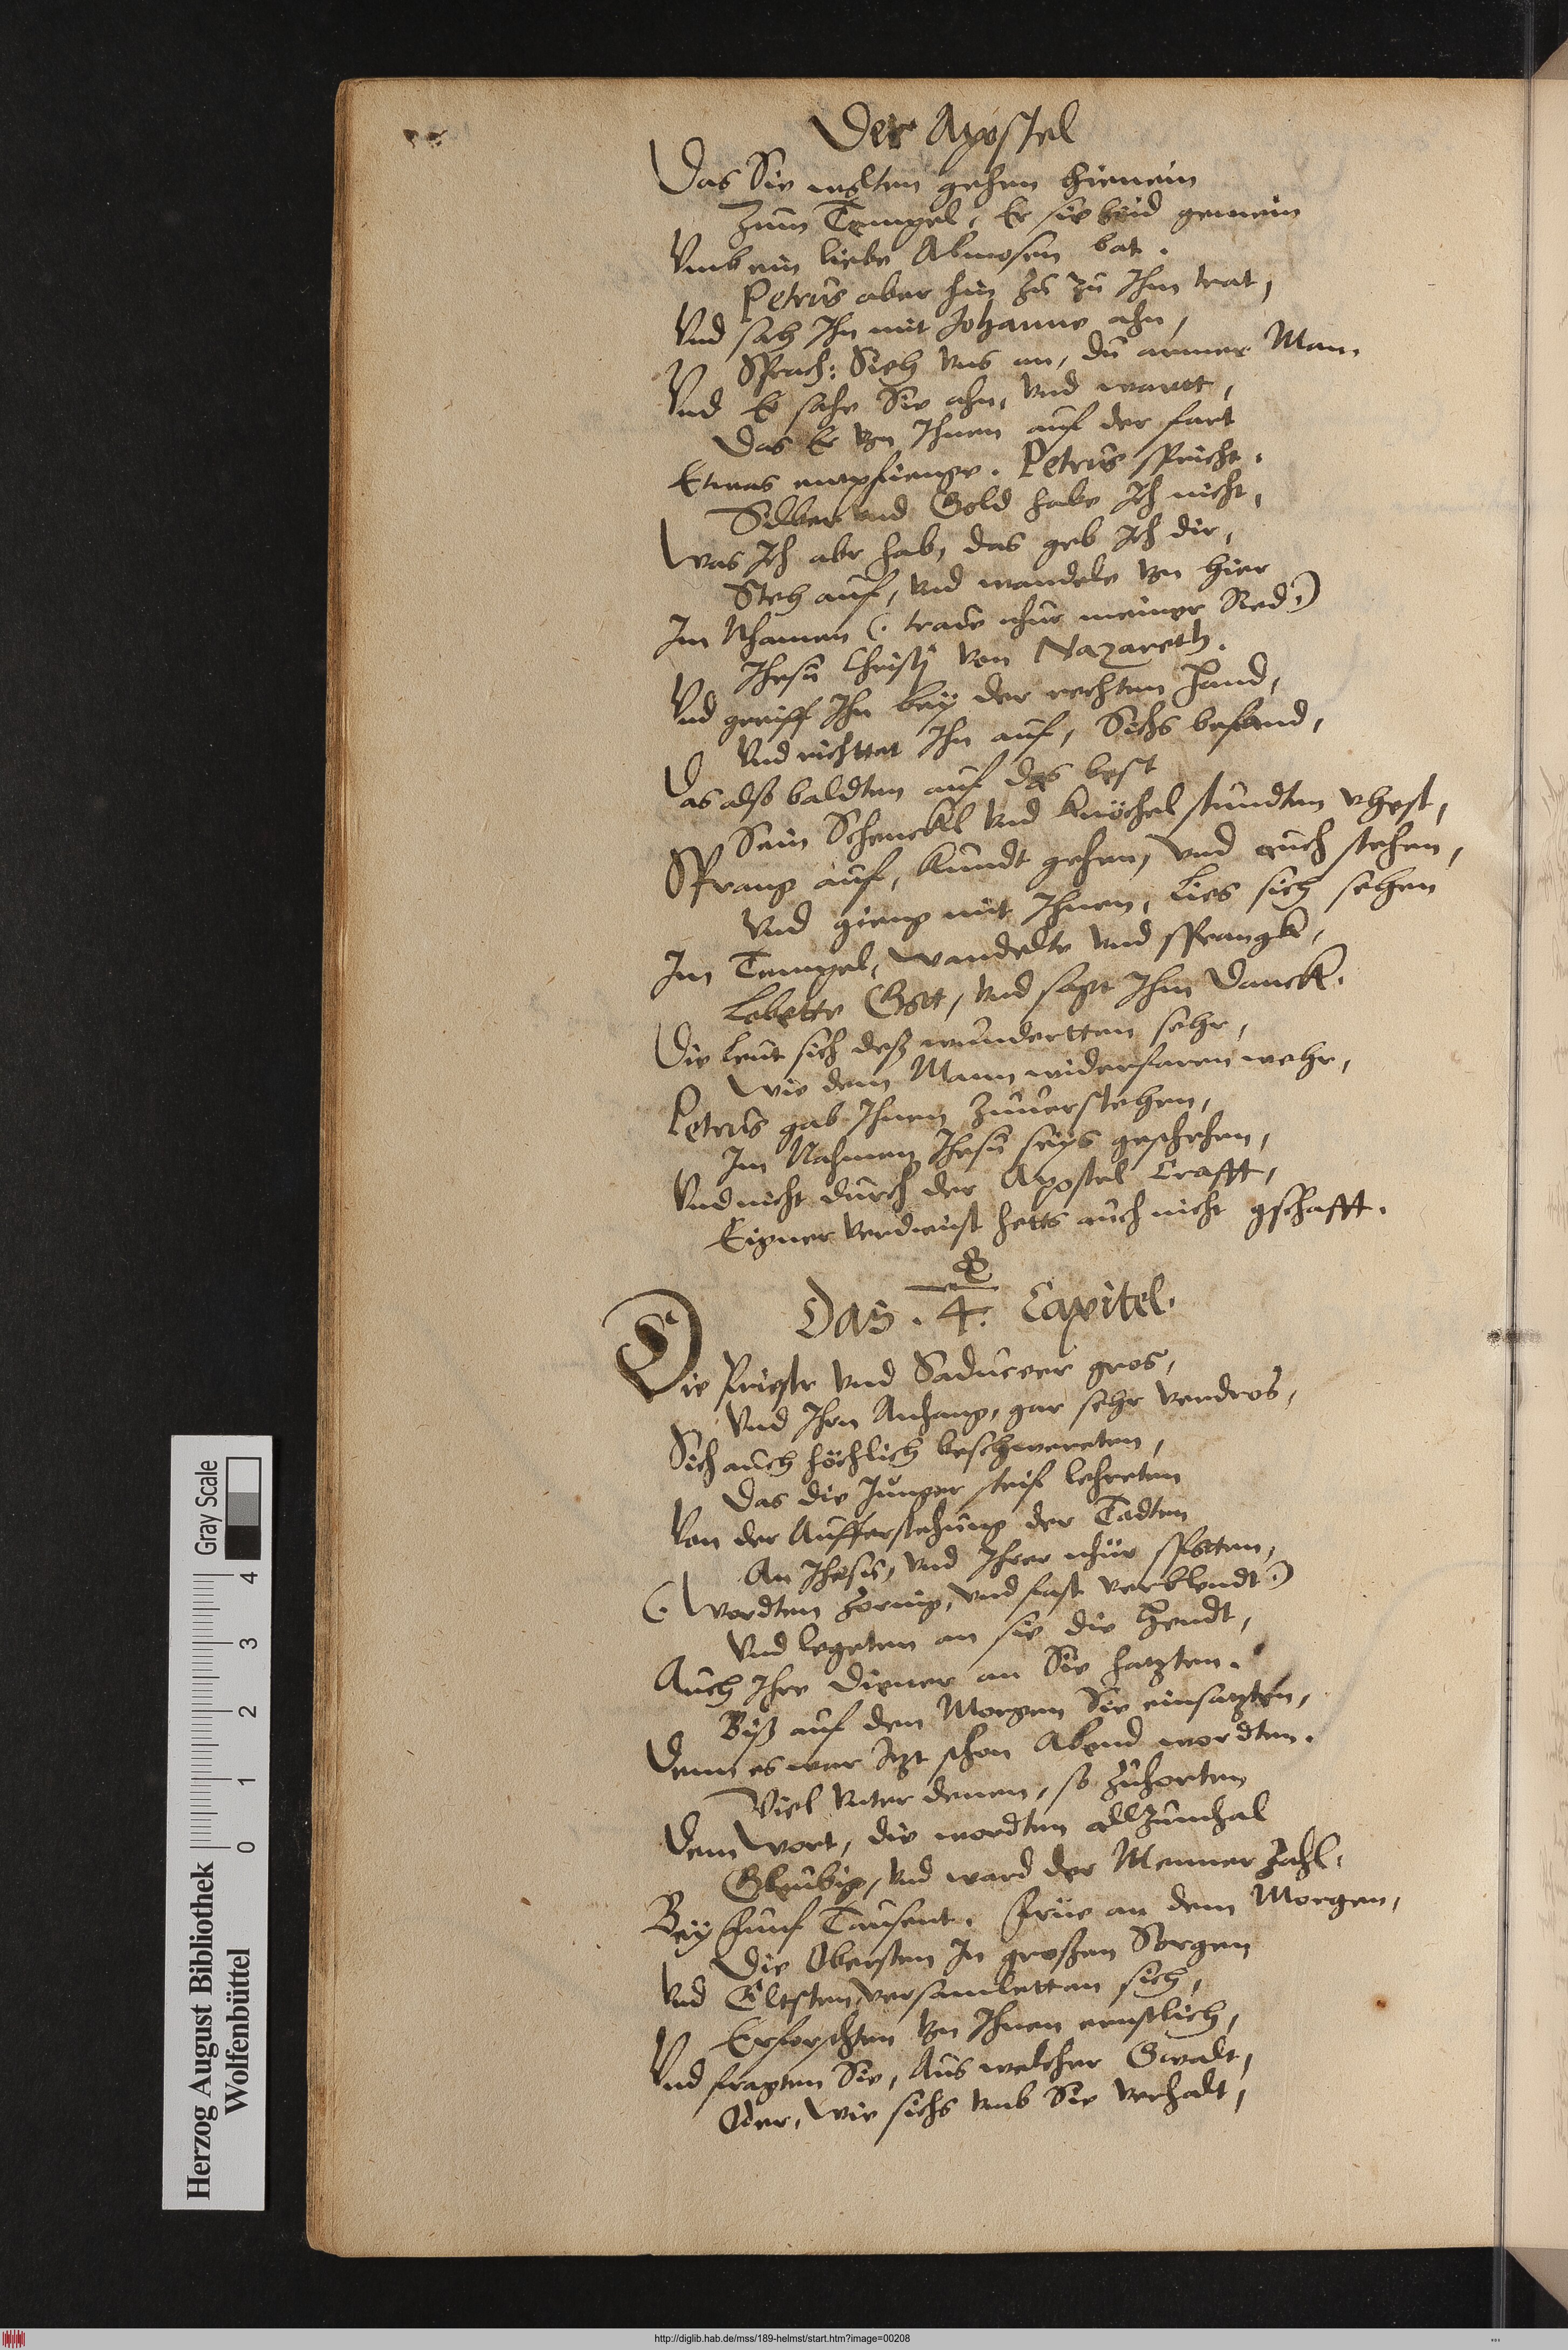 Der Apostel
Das Sie wolten gehen hienein
Zum Tempel, Er sie beid gemein
Vmb ein liebe Almosen bat.
Petrus aber hin zu zu Ihm trat,
Vnd sah Ihn mit Johanne ahn,
Sprach: Sieh vns an, du armer Man.
Vnd Er sahe Sie ahn, vnd wartt,
Das Er von Ihnen auf der fart
Etwas empfienge. Petrus spricht.
Silber vnd Gold habe Ich nicht,
Was Ich abr hab, das geb Ich dir,
Steh auf, vnd wandele von hier
Im Nhamen (: traue nhur meiner Red :)
Ihesu Christj von Nazareth.
Vnd greiff Ihn bey der rechten Hand,
Vnd richttet Ihn auf, Sichs befand,
Das alß baldten auf das best
Sein Schenckl vnd Knöchel stundten vhest,
Sprang auf, kundt gehen, vnd auch stehen,
Vnd gieng mit Ihnen, Lies sich sehen
Im Tempel, Wandelte vnd sprangk,
Lobette Gott, vnd sagt Ihm Danck.
Die Leut sich deß wundertten sehr,
Wie dem Mann widerfaren wehr,
Petrus gab Ihnen zuuerstehen,
Im Nahmen Ihesu seys geschehen,
Vnd nicht durch der Apostel Crafft,
Eigner verdienst hetts auch nicht gschafft.
Das . 4. Capitel.
Die Priestr vnd Saduceer gros,
Vnd Ihrn Anhang, gar sehr verdros,
Sich auch höchlich beschwereten,
Das die Junger steif lehreten
Von der Aufferstehung der Todten
An Ihesus, vnd Ihrer nhur spotten,
(: Wordten zornig, vnd fast verblendt :)
Vnd legeten an sie die Hendt,
Auch Ihre Diener an Sie hatzten.
Biß auf den Morgen Sie einsatzten,
Denn es war Itzt schon Abend worden.
Viel vnter denen, so zuhorten
Dem Wort, die wordten allzumhal
Gleubig, vnd ward der Menner Zahl,
Bey Funf Tausent. Frue an dem Morgen,
Die Obersten In großen Sorgen
Vnd Eltsten versamletten sich,
Erforschten von Ihnen ernstlich,
Vnd fragten Sie, Aus welcher Gwalt,
Oder, Wie sichs vmb Sie verhalt,
Herzog August Bibliothek
Wolfenbüttel
0 1 2 3 4
Gray Scale
http://diglib.hab.de/mss/189-helmst/start.htm?image=00208